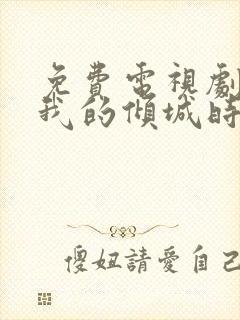 免費電視劇
我的傾城時
傻妞請愛自己